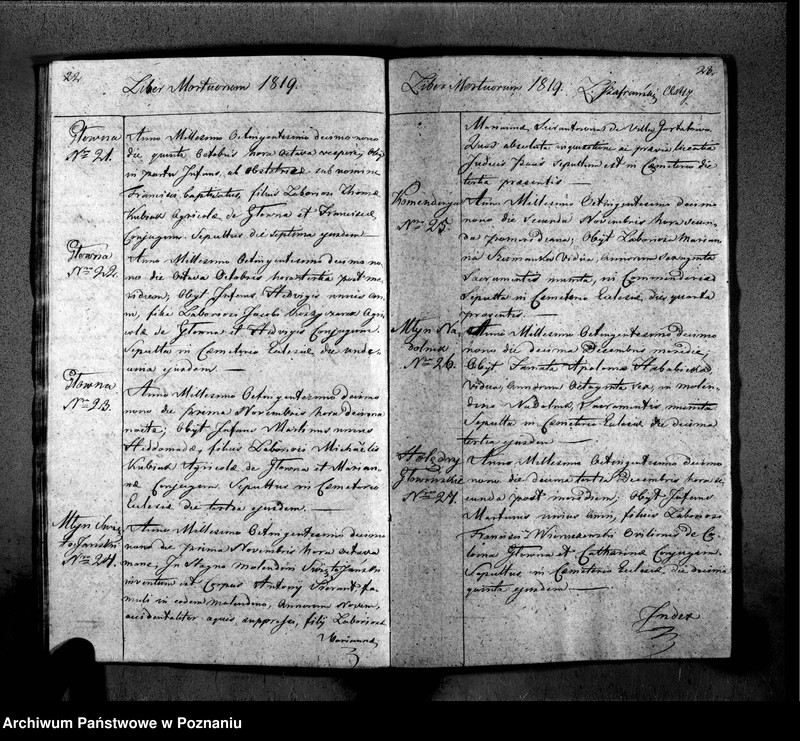 22.
Liber Mortuorum 1819.
Głowna
Nro 21.
Anno Millesimo Octingentesimo decimo nono
die quinta Octobris hora octava vesperi, Obiit
in partu Infans, ab obstetrice sub nomine
Francisci baptisatus, filius Laboriosi Thomae
Kubiak Agricolae de Głowna et Franciscae
Conjugum. Sepultus die septima ejusdem.
Głowna
Nro 22.
Anno Millesimo Octingentesimo decimo no
no die octava Octobris hora tertia post me
ridiem, Obiit Infans Hedvigis unius an
ni, filia Laboriosi Jacobi Agri
colae de Głowna et Hedvigis Conjugum.
Sepulta in Cemeterio Ecclesiae, die unde
cima ejusdem.
Głowna
Nro 23.
Anno Millesimo Octingentesimo decimo
nono die prima Novembris hora decima
nocte; Obiit Infans Martinus unius
Hebdomadae, filius Laboriosi Michaëlis
Kubiak Agricolae de Głowna et Marian
nae Conjugum. Sepultus in Cemeterio
Ecclesiae die tertia ejusdem.
Młyn Święt
to Jański
Nro 24.
Anno Millesimo Octingentesimo decimo
nono die prima Novembris hora octava
mane. In Stagno molendini Święto Jański
inventum est Corpus Antonij fa
muli in eodem molendino, Annorum Novem,
accidentaliter aquis suppressi, filij Laboriosae
Marianna
23.
Liber Mortuorum 1819.
Szafranski
Marianna, de Villa
Duos absoluta inquestione ac praevia licentia
Judicii Pacis sepultum est in Cemeterio die
tertia praesentis
Komenderya
Nro 25.
Anno Millesimo Octingentesimo decimo
nono die Secunda Novembris hora secun
da pomeridiana; Obiit Laboriosa Marian
na Vidua, annorum Sexaginta
Sacramentis munita, in Commenderia
Sepulta in Cemeterio Ecclesiae, die quarta
praesentis.
Młyn Na
dolnik
Nro 26.
Anno Millesimo Octingentesimo decimo
nono die decima Decembris meridie,
Obiit Famata Apolonia
Vidua, Annorum Octaginta sex, in molen
dino Nadolnik, Sacramentis munita
Sepulta in Cemeterio Ecclesiae die decima
tertia ejusdem
Holędry
Głowinskie
Nro 27.
Anno Millesimo Octingentesimo decimo
nono die decima tertia Decembris hora se
cunda post meridiem; Obiit Infans
Martinus unius Anni, filius Laboriosi
Francisci Ovilionis de Co
lonia Głowna et Catharinae Conjugum.
Sepultus in Cemeterio Ecclesiae, die decima
quinta ejusdem.
Index
Archiwum Państwowe w Poznaniu